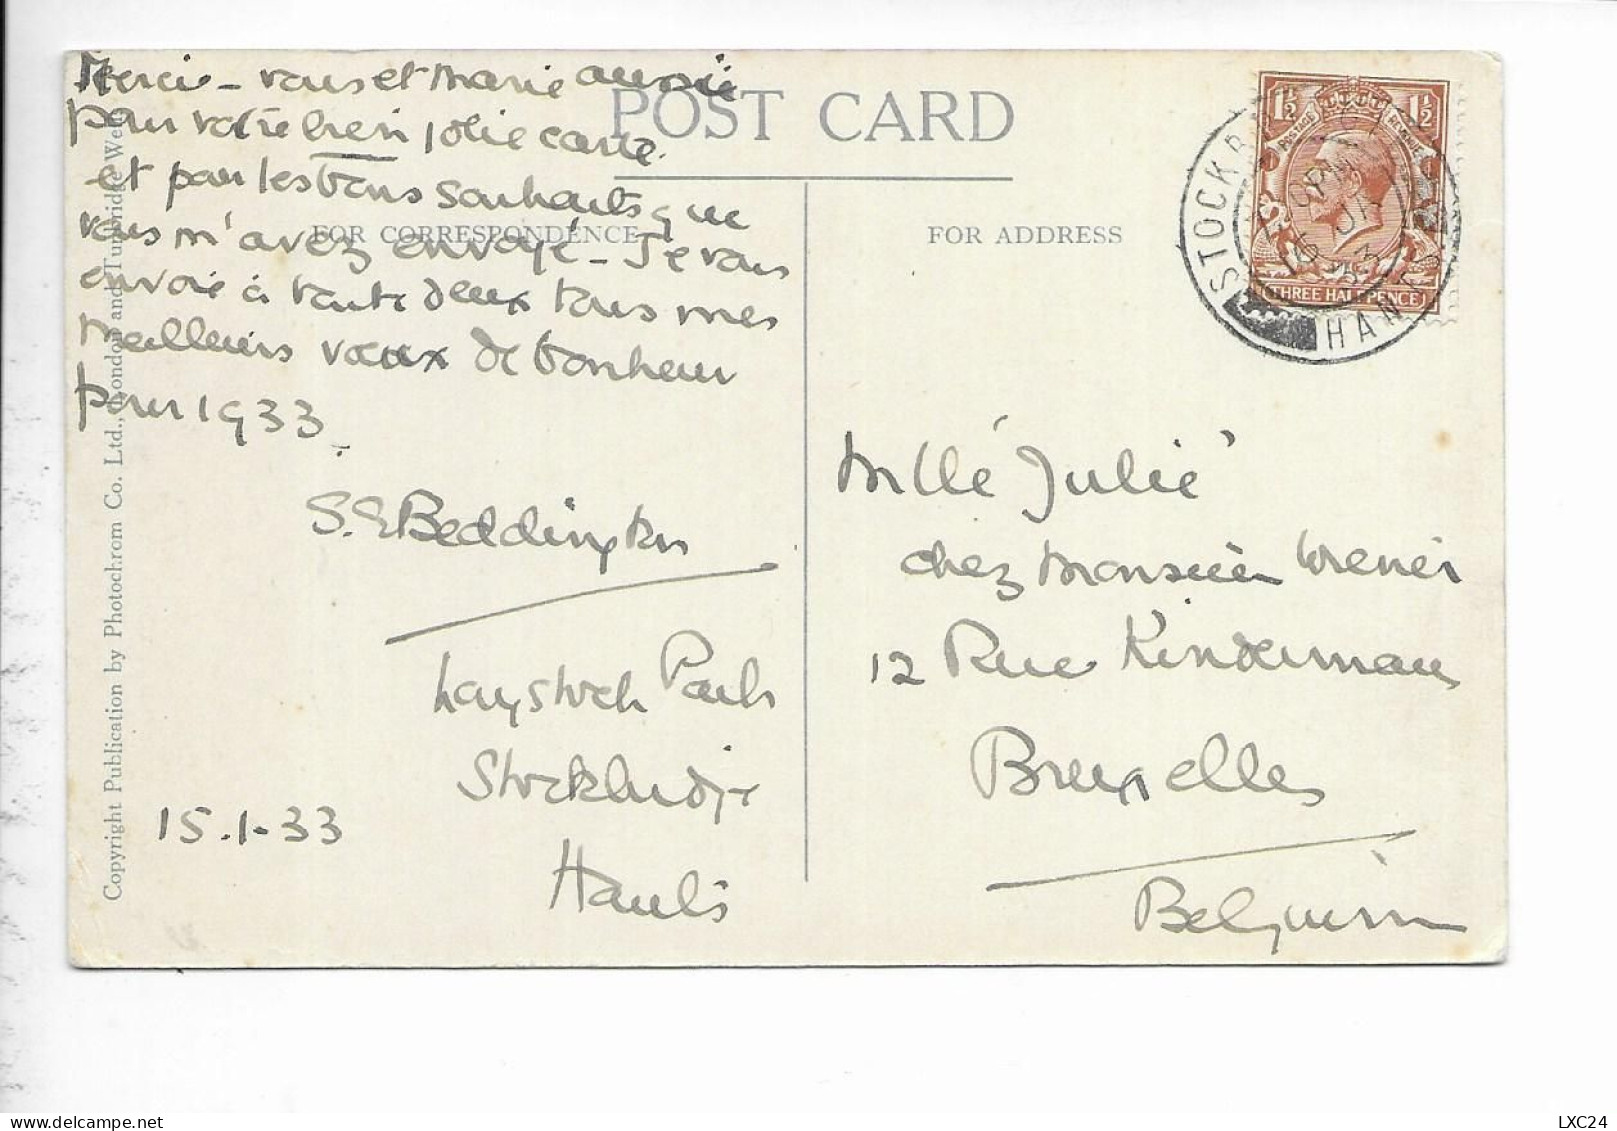 Merci – vous et Marie aussi
pour votre bien jolie carte.
et pour les bons souhaits que
vous m'avez envoyé – Je vous
envoie à toute deux tous mes
meilleurs vœux de bonheur
pour 1933.
S. E. Beddington
Park
Stockbridge
Hants
15.1.33
POST CARD
FOR CORRESPONDENCE
FOR ADDRESS
Copyright Publication by Photochrom Co. Ltd., London and Tunbridge Wells
1½ 1½
POSTAGE REVENUE
THREE HALFPENCE
STOCKB
HANTS
Mlle Julie
chez Monsieur
12 Rue Kindermans
Bruxelles
Belgium
LXC24